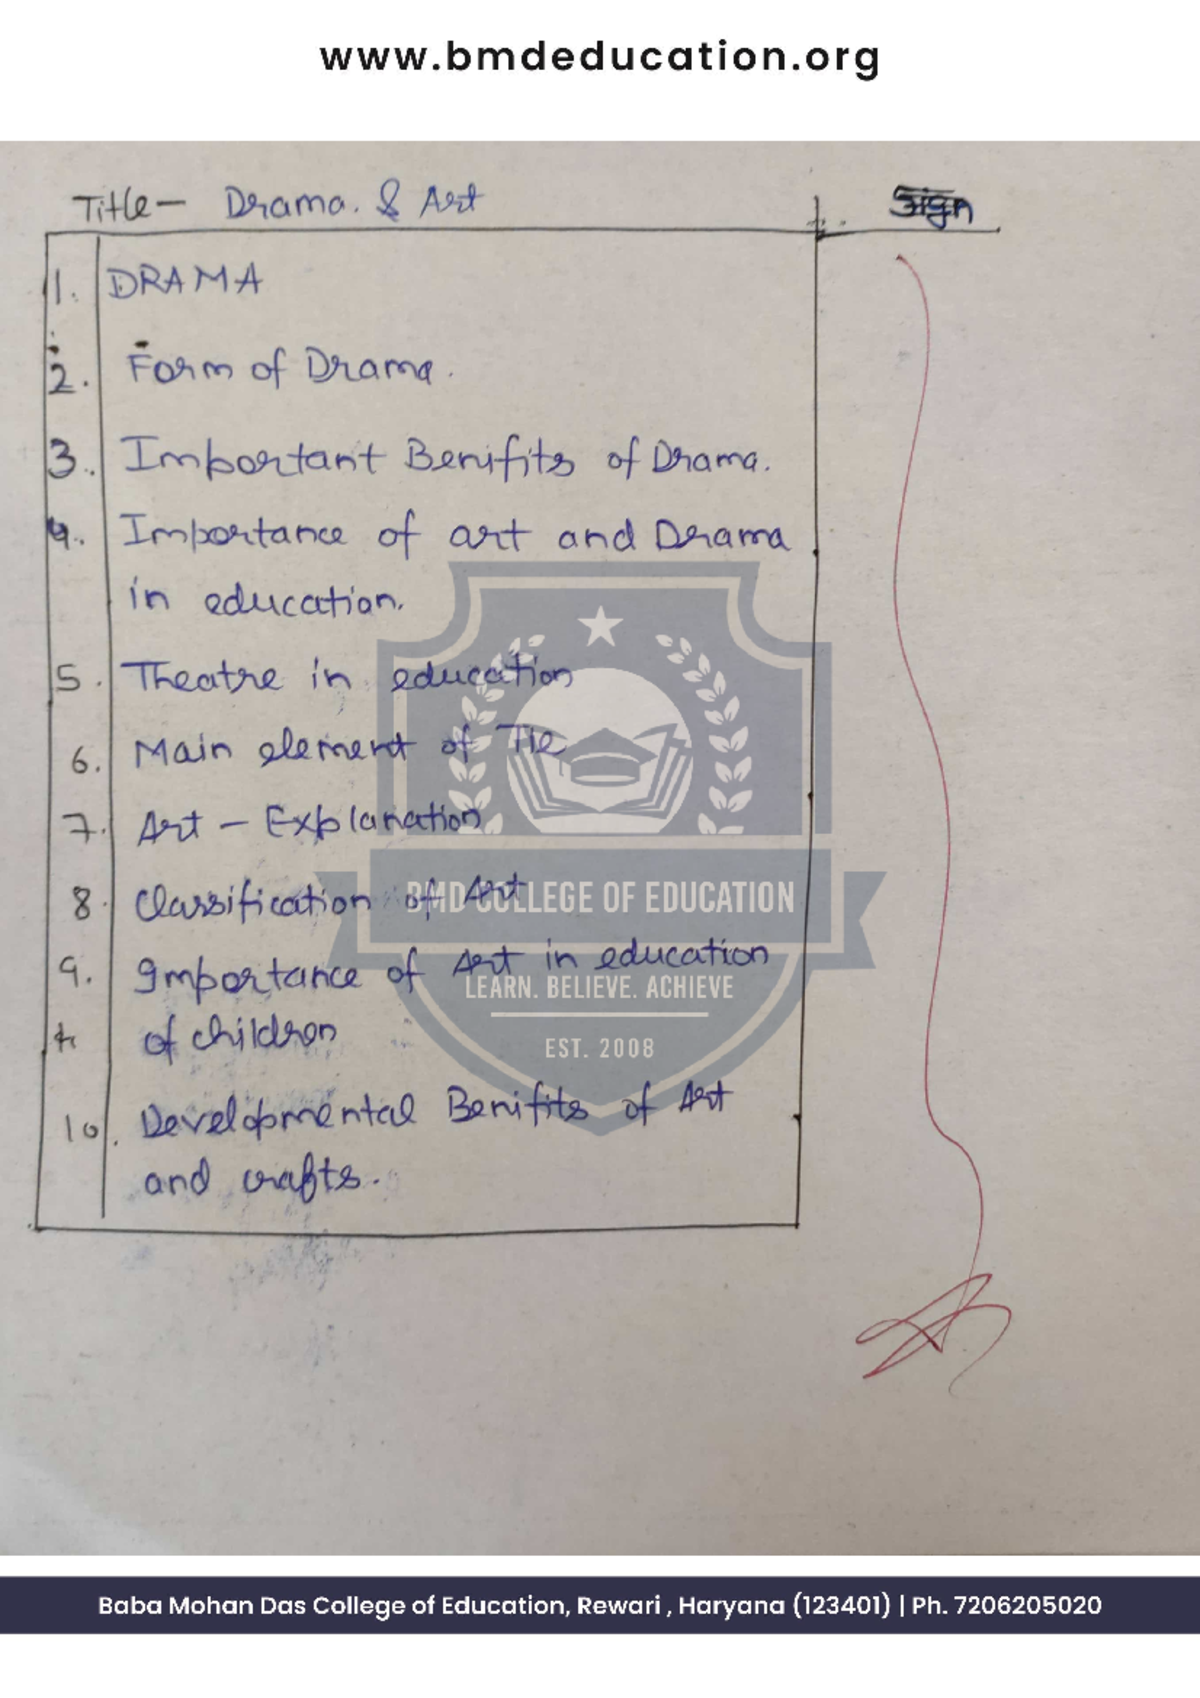 www.bmdeducation.org
Title- Drama. & Art
Sign
1. DRAMA
2. Form of Drama.
3. Important Benifits of Drama.
4. Importance of art and Drama
in education.
5. Theatre in education
6. Main element of TIE
7. Art - Explanation
8. Classification of Art
BMD COLLEGE OF EDUCATION
9. Importance of Art in education
LEARN. BELIEVE. ACHIEVE
of children
EST. 2008
10. Developmental Benifits of Art
and crafts.
Baba Mohan Das College of Education, Rewari , Haryana (123401) | Ph. 7206205020